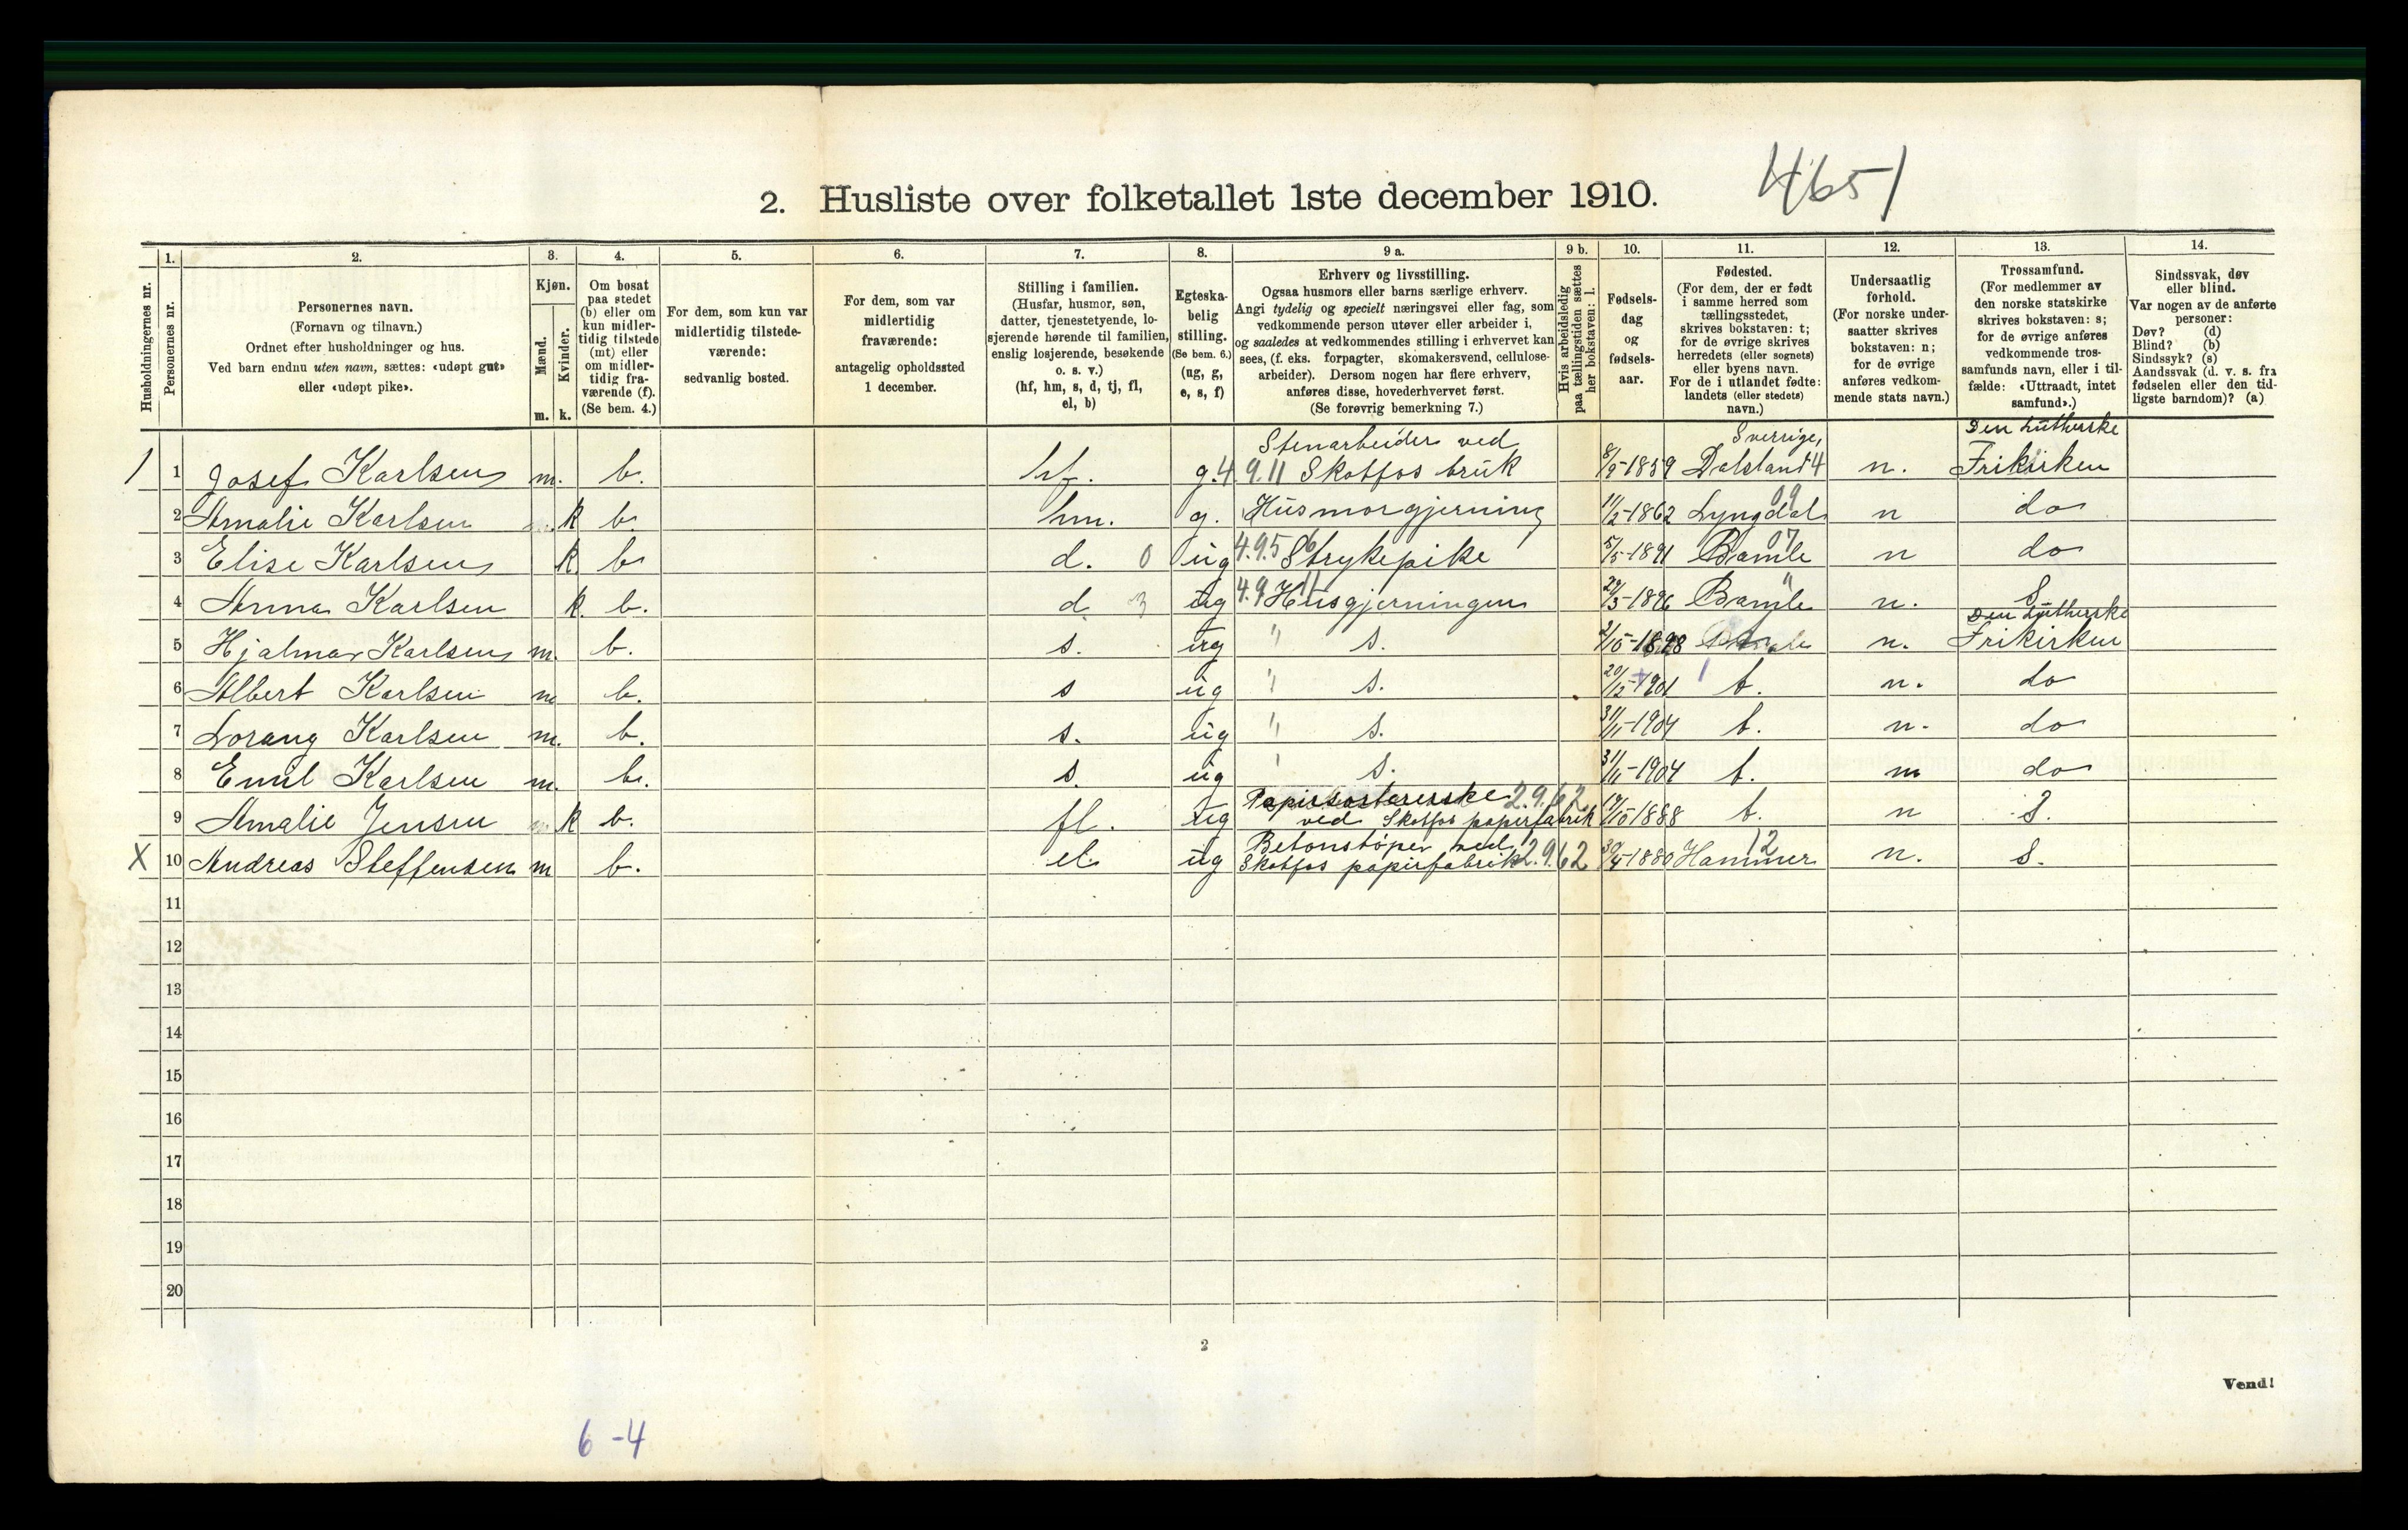 4651
2. Husliste over folketallet 1ste december 1910.
Husholdningernes nr.
1. Personernes nr.
2. Personernes navn.
(Fornavn og tilnavn.)
Ordnet efter husholdninger og hus.
Ved barn endnu uten navn, sættes: «udøpt gut»
eller «udøpt pike».
3. Kjøn.
Mænd. m.
Kvinder. k.
4. Om bosat
paa stedet
(b) eller om
kun midler-
tidig tilstede
(mt) eller
om midler-
tidig fra-
værende (f).
(Se bem. 4.)
5. For dem, som kun var
midlertidig tilstede-
værende:
sedvanlig bosted.
6. For dem, som var
midlertidig
fraværende:
antagelig opholdssted
1 december.
7. Stilling i familien.
(Husfar, husmor, søn,
datter, tjenestetyende, lo-
sjerende hørende til familien,
enslig losjerende, besøkende
o. s. v.)
(hf, hm, s, d, tj, fl,
el, b)
8. Egteska-
belig
stilling.
(Se bem. 6.)
(ug, g,
e, s, f)
9 a. Erhverv og livsstilling.
Ogsaa husmors eller barns særlige erhverv.
Angi tydelig og specielt næringsvei eller fag, som
vedkommende person utøver eller arbeider i,
og saaledes at vedkommendes stilling i erhvervet kan
sees, (f. eks. forpagter, skomakersvend, cellulose-
arbeider). Dersom nogen har flere erhverv,
anføres disse, hovederhvervet først.
(Se forøvrig bemerkning 7.)
9 b. Hvis arbeidsledig
paa tællingstiden sættes
her bokstaven: l.
10. Fødsels-
dag
og
fødsels-
aar.
11. Fødested.
(For dem, der er født
i samme herred som
tællingsstedet,
skrives bokstaven: t;
for de øvrige skrives
herredets (eller sognets)
eller byens navn.
For de i utlandet fødte:
landets (eller stedets)
navn.)
12. Undersaatlig
forhold.
(For norske under-
saatter skrives
bokstaven: n;
for de øvrige
anføres vedkom-
mende stats navn.)
13. Trossamfund.
(For medlemmer av
den norske statskirke
skrives bokstaven: s;
for de øvrige anføres
vedkommende tros-
samfunds navn, eller i til-
fælde: «Uttraadt, intet
samfund».)
14. Sindssvak, døv
eller blind.
Var nogen av de anførte
personer:
Døv? (d)
Blind? (b)
Sindssyk? (s)
Aandssvak (d. v. s. fra
fødselen eller den tid-
ligste barndom)? (a)
Stenarbeider ved Sverrige, Den Lutherske
1 1 Josef Karlsen m. b. hf. g. 4.9.11 Skotfos brük 8/9-1859 Dalsland 4 n. Frikirken
2 Amalie Karlsen k b. hm. g. Hüsmorgjerning 11/2-1862 Lyngdal 09 n do
3 Elise Karlsen k b d. 0 üg 4.9.5 6 Strykepike 5/5-1891 Bamle 07 n do
4 Anna Karlsen k. b. d. 3 üg 4.9 11 Hüsgjerningen 29/3-1896 Bamle " n. S
Den Lütherske
5 Hjalmar Karlsen m. b. s. üg " s. 2/10-1898 n. Frikirken
6 Albert Karlsen m b. s üg " s. 20/12-1901 t. n. do
7 Lorang Karlsen m. b. s. üg " s. 31/11-1904 t. n. do
8 Emil Karlsen m. b. s. üg " s. 31/11-1904 t. n do
Papirsortererske 2.9.62
9 Amalie Jensen k b. fl. üg ved Skotfos papirfabrik 17/10 1888 t. n S.
Betonstøper ved 12
X 10 Andreas Steffensen m b. el üg Skotfos papirfabrik 2.9.62 30/4-1880 Hammer n. s.
11
12
13
14
15
16
17
18
19
20
2
Vend!
6-4